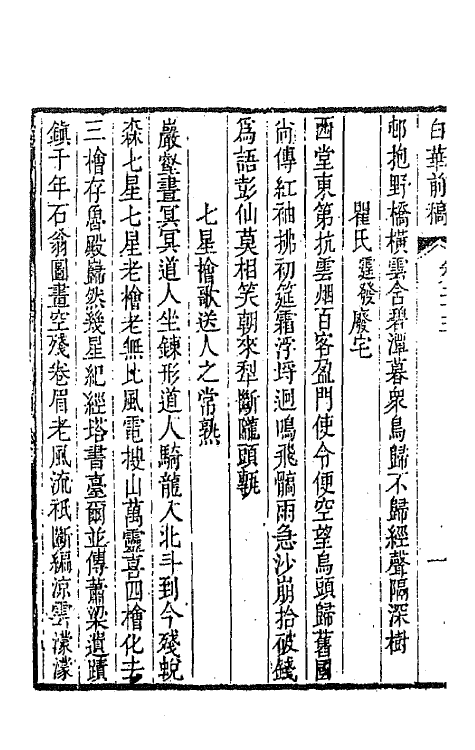 白華前稿 卷二十三 一
邨抱野橋橫雲合碧潭暮衆鳥歸不歸經聲隔深樹
瞿氏霆發廢宅
西堂東第抗雲烟百客盈門使令便空望烏頭歸舊國
尙傳紅袖拂初筵霜浮埒迴鳴飛鏑雨急沙崩拾破錢
爲語彭仙莫相笑朝來犁斷隴頭甎
七星檜歌送人之常熟
巖壑晝冥冥道人坐鍊形道人騎龍入北斗到今殘蛻
森七星七星老檜老無比風電搜山萬靈喜四檜化去
三檜存魯殿巋然幾星紀經塔書臺爾並傳蕭梁遺蹟
鎮千年石翁圖畫空殘卷眉老風流祇斷編涼雲濛濛